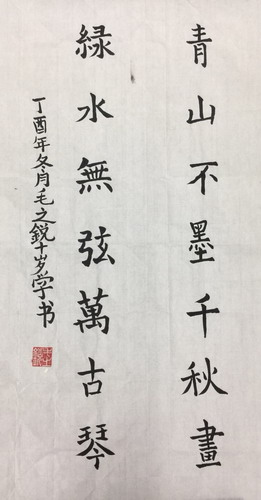 青山不墨千秋畫
緑水無弦萬古琴
丁酉年冬月毛之鋭十岁学书